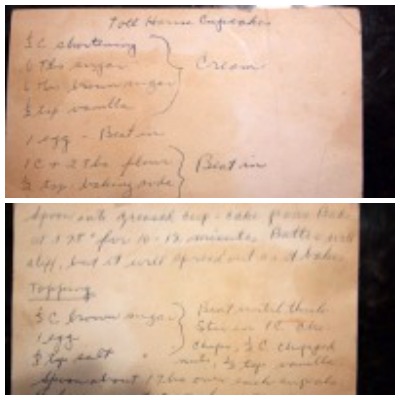 Toll House Cupcakes
½ C shortening
6 Tbs sugar
6 Tbs brown sugar
Cream
½ tsp vanilla
1 egg - Beat in
1 C + 2 Tbs flour
½ tsp baking soda
Beat in
Spoon into greased cup-cake pans Bake
at ° for 10-12 minutes. Batter
stiff, but it will spread out as it bakes
Topping
½ C brown sugar
1 egg
tsp salt
Beat until thick
Stir in 1 C choc
chips, ½ C chopped
nuts, ½ tsp vanilla
Spoon about 1 Tbs over each cupcake